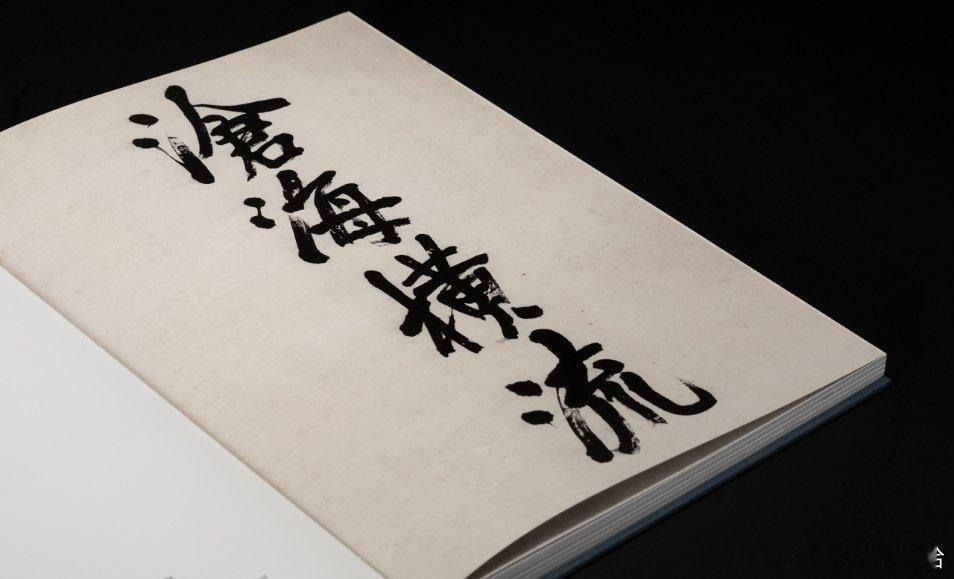 滄海橫流